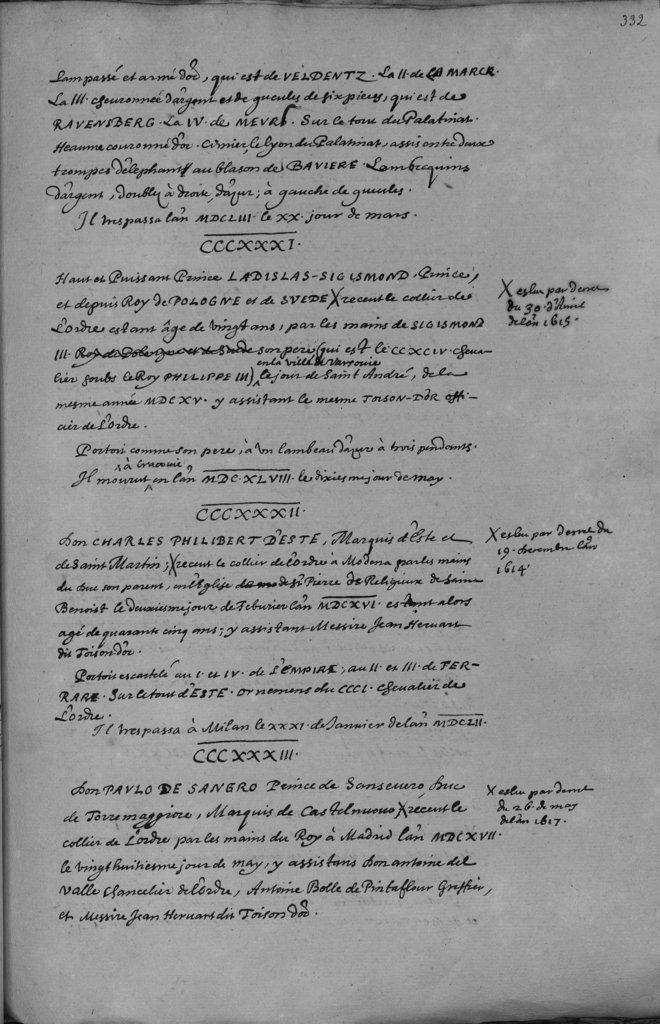 332
Lampassé et armé d'or, qui est de VELDENTZ. La II. de LA MARCK.
La III. cheuronnée d'argent et de gueules de six pieces, qui est de
RAVENSBERG. La IV. de MEVRS. Sur le tout du Palatinat.
Heaume couronné d'or. Cimier, le lyon du Palatinat, assis entre deux
trompes d'elephant au blason de BAVIERE. Lambrequins
d'argent, doublez à droite d'azur; à gauche de gueules.
Il trespassa l'an MDCLIII. le XX. jour de mars.
CCCXXXI.
Haut et Puissant Prince LADISLAS-SIGISMOND, Prince,
et depuis Roy de POLOGNE et de SVEDE X receut le collier de
L'ordre estant âge de vingt ans, par les mains de SIGISMOND
III. Roy de Pologne et de Suede son pere (qui est le CCXCIV. cheua-
lier soubs le Roy PHILIPPE III) en la ville de Varsovie le jour de Saint André, de la
mesme année MDCXV. y assistant le mesme TOISON-D'OR offi-
cier de L'ordre.
X esleu par decret
du 30. d'Auril
de l'an 1615.
Portoit comme son pere, à un lambeau d'azur à trois pendants.
Il mourut à Cracouie en l'an MDC.XLVIII. le dixiesme jour de may.
CCCXXXII.
Don CHARLES PHILIBERT D'ESTE, Marquis d'Este et
de Saint Martin; X receut le collier de L'ordre à Modena par les mains
du Duc son parent, en l'Eglise de St Pierre de Religieux de Saint
Benoist le deuxiesme jour de Febvrier l'an MDCXVI. estant alors
agé de quarante cinq ans; y assistant Messire Jean Hervart
dit Toison d'or.
X esleu par decret du
19. decembre l'an
1614.
Portoit escartelé au I. et IV. de L'EMPIRE; au II. et III. de FER-
RARE. Sur le tout d'ESTE. ornemens du CCCI. Chevalier de
L'ordre.
Il trespassa à Milan le XXXI. de Januier de l'an MDCLII.
CCCXXXIII.
Don PAVLO DE SANGRO Prince de Sansevero Duc
de Torremaggiore, Marquis de Castelnuouo X receut le
collier de L'ordre par les mains du Roy à Madrid l'an MDCXVII.
le vingt huitiesme jour de may, y assistans Don Antoine del
Valle Chancelier de L'ordre, Antoine Bolle de Pintaflour Greffier,
et Messire Jean Hervart dit Toison d'or.
X esleu par decret
du 26. de may
de l'an 1617.